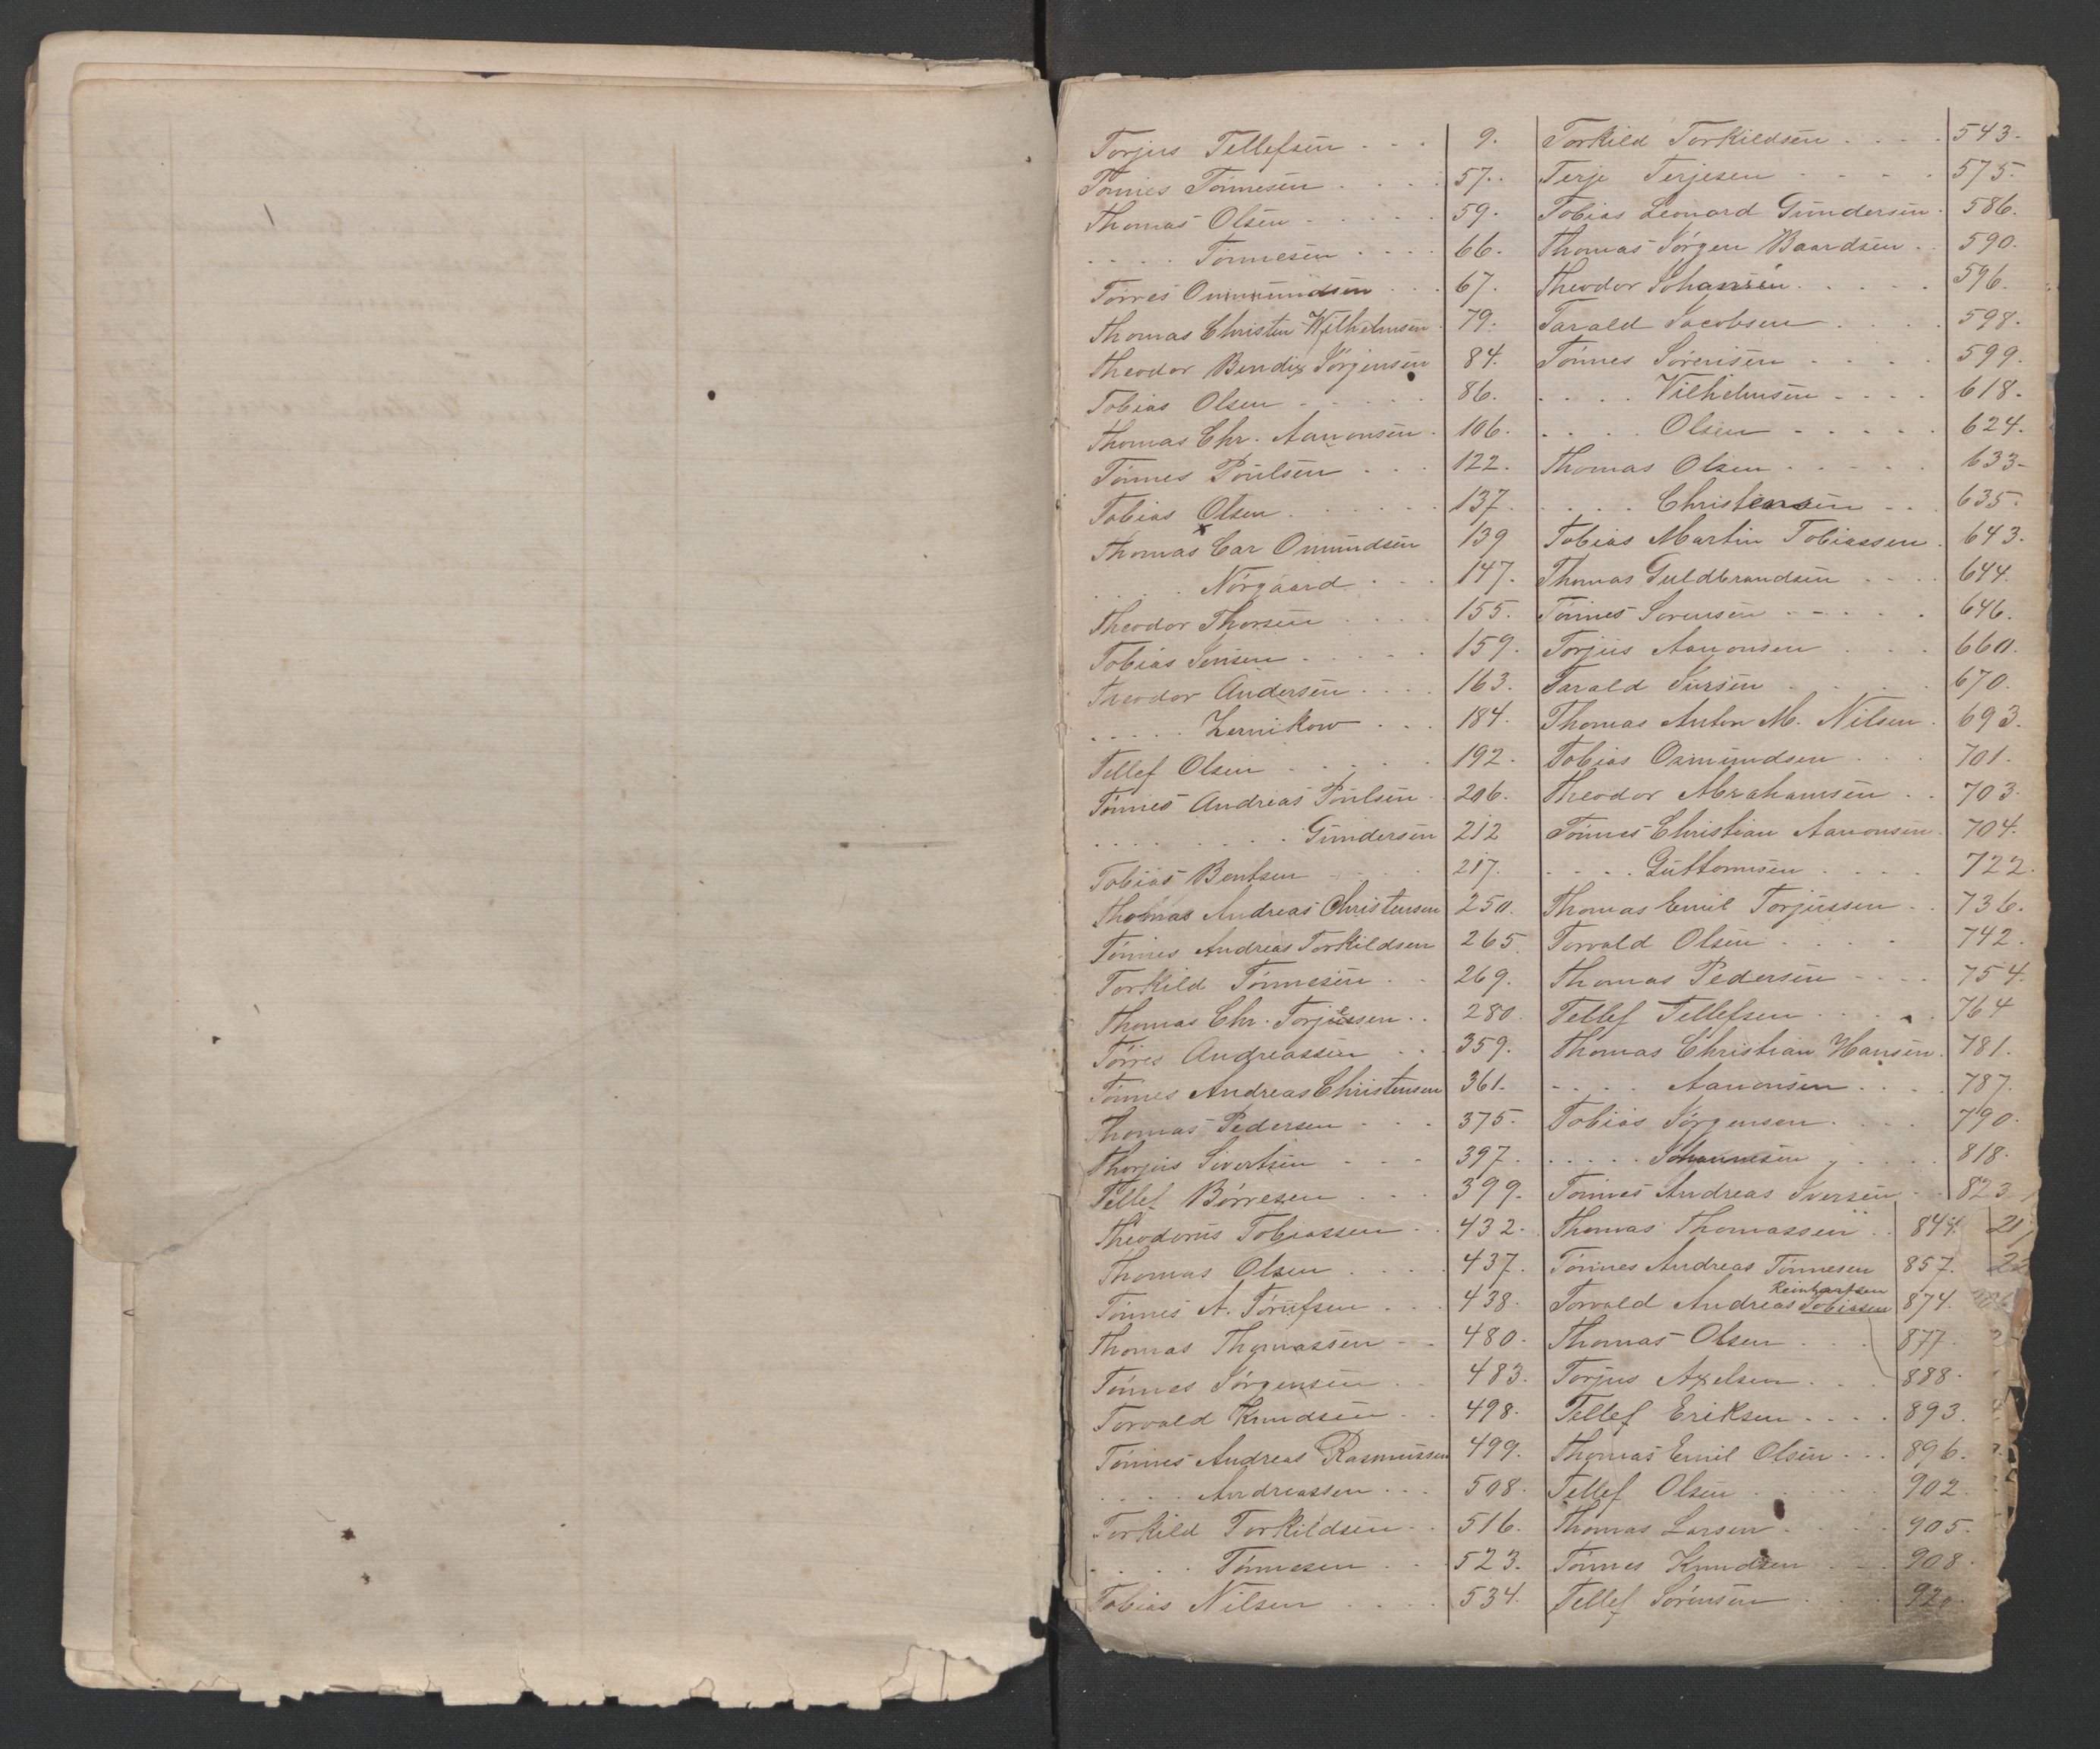 Torjus Tellefsen . . . 9.
Tönnes Tönnesen . . . . 57.
Thomas Olsen . . . . . 59.
. . . . Tönnesen . . . . 66.
Törres Ommundsen . . . 67.
Thomas Christen Wilhelmsen . 79.
Theodor Bendix Jörgensen 84.
Tobias Olsen . . . . . 86.
Thomas Chr. Aanonsen . 106.
Tönnes Poulsen . . . 122.
Tobias Olsen . . . . . . 137.
Thomas Car Omundsen 139
. . . . Nörgaard . . . 147.
Theodor Thorsen . . . . 155.
Tobias Jensen . . . . . 159.
Theodor Andersen . . . . 163.
. . . . . Zernikow . . . 184.
Tellef Olsen . . . . . 192.
Tönnes Andreas Poulsen . 206.
. . . . . . . . Gundersen 212
Tobias Bentsen . . . . 217.
Thomas Andreas Christensen 250.
Tönnes Andreas Torkildsen 265.
Torkild Tönnesen . . 269.
Thomas Chr. Torjessen . . 280.
Törres Andreassen . . . 359.
Tönnes Andreas Christensen 361.
Thomas Pedersen . . . 375.
Thorjus Sivertsen . . . 397.
Tellef Börresen . . . 399.
Theodorus Tobiassen . . 432.
Thomas Olsen . . . . 437.
Tönnes A. Torufsen . . . 438.
Thomas Thomassen . . 480.
Tönnes Jörgensen . . 483.
Torvald Knudsen . . 498.
Tönnes Andreas Rasmussen 499.
. . . . Andreassen . . . 508.
Torkild Torkildsen . . 516.
. . . . Tönnesen . . . 523.
Tobias Nilsen . . . . 534.
Torkild Torkildsen . . . . 543.
Terje Terjesen . . . . . 575.
Tobias Leonard Gundersen . 586.
Thomas Jörgen Baardsen . . 590.
Theodor Johansen . . . . . 596.
Tarald Jacobsen . . . . 598.
Tönnes Sörensen . . . . 599.
. . . . Vilhelmsen . . . . 618.
. . . . Olsen . . . . . 624.
Thomas Olsen . . . . . 633.
. . . . Christensen . . . 635.
Tobias Martin Tobiassen . 643.
Thomas Guldbrandsen . . . . 644.
Tönnes Sorensen . . . . . 646.
Torjus Aanonsen . . . 660.
Tarald Iversen . . . . . 670.
Thomas Anton M. Nilsen . 693.
Tobias Osmundsen . . . 701.
Theodor Abrahamsen . . 703.
Tönnes Christian Aanonsen . 704.
. . . . Guttormsen . . . . 722.
Thomas Emil Torjussen . . 736.
Torvald Olsen . . . . 742.
Thomas Pedersen . . . . 754.
Tellef Tellefsen . . . . . 764
Thomas Christian Hansen . 781.
. . . . Aanonsen . . . . 787.
Tobias Jörgensen . . . . 790.
. . . . . Johannesen . . . . 818.
Tönnes Andreas Iversen . . 823
Thomas Thomassen . . 844. 21
Tönnes Andreas Tönnesen 857. 22
Reinhartsen
Torvald Andreas Tobiassen 874.
Thomas Olsen . . . 877.
Torjus Axelsen . . . 888.
Tellef Eriksen . . . . 893.
Thomas Emil Olsen . . . 896.
Tellef Olsen . . . . . 902.
Thomas Larsen . . . . 905.
Tönnes Knudsen . . . 908.
Tellef Sörensen . . . .